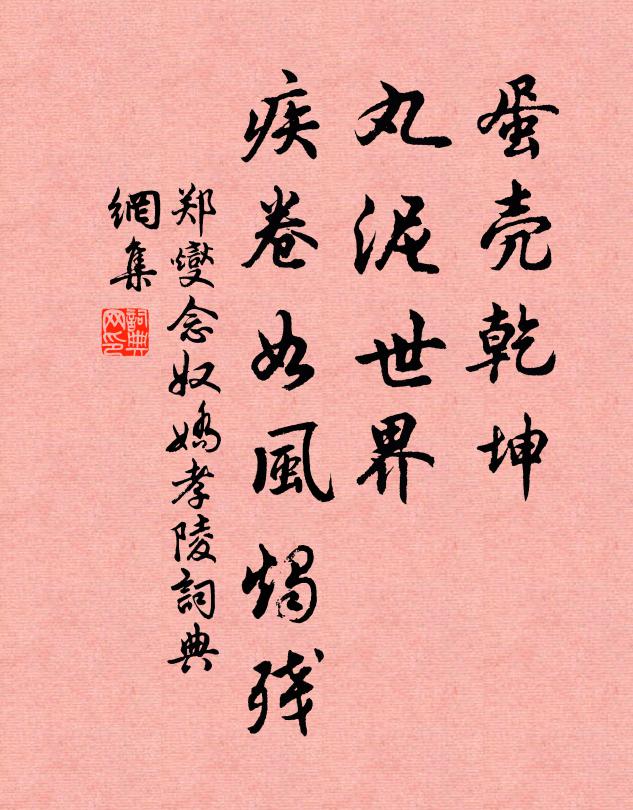 蛋壳乾坤
丸泥世界
疾卷如風燭残
郑燮念奴嬌孝陵詞典
網集
詞典
网印